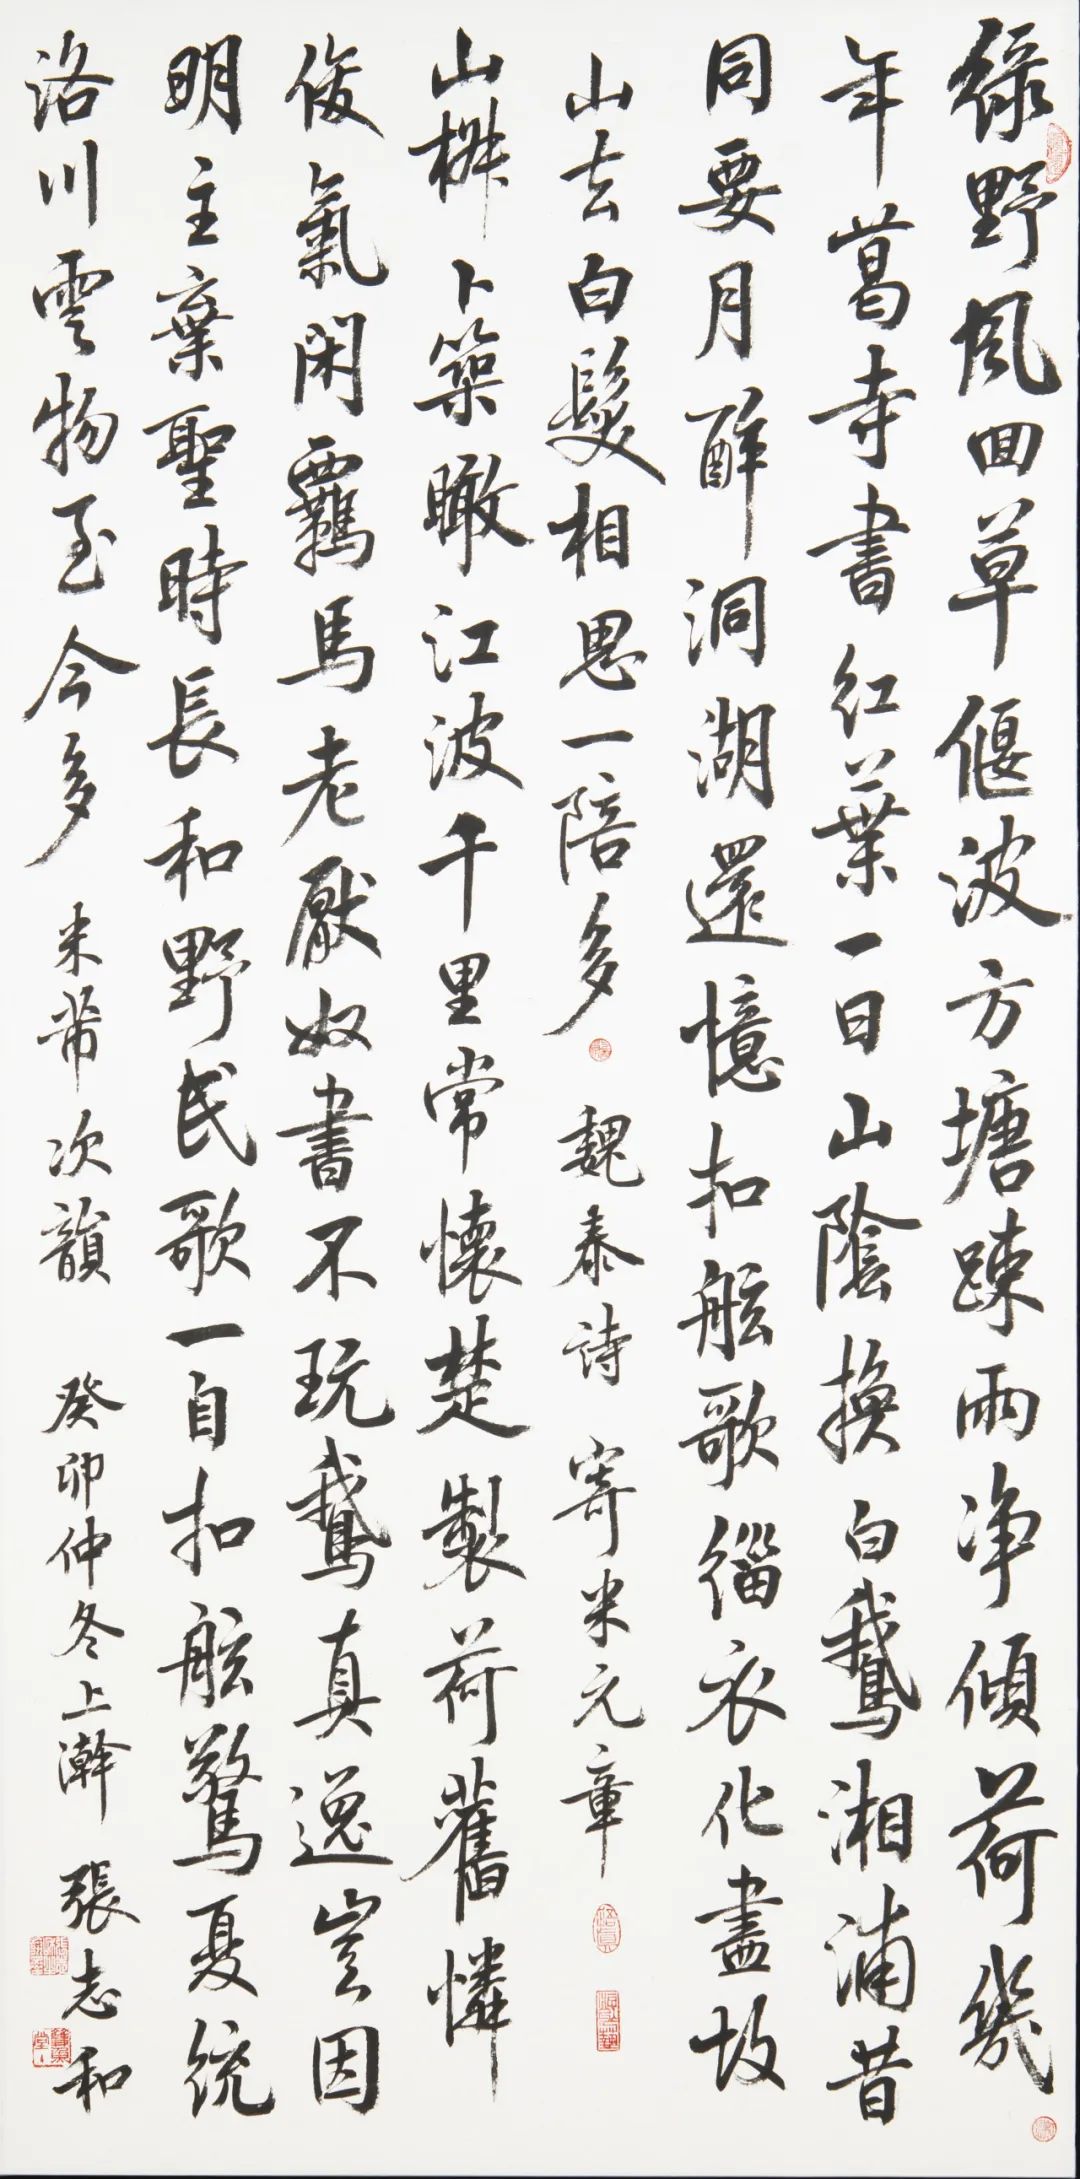 綠野風回草偃波方塘踈雨净傾荷幾
年葛寺書紅葉一日山陰換白鵝湘浦昔
同要月醉洞湖還憶扣舷歌緇衣化盡故
山去白髮相思一陪多 魏泰詩 寄米元章
山椒卜築瞰江波千里常懷楚製荷舊憐
俊氣閑羈馬老厭奴書不玩鵝真逸豈因
明主棄聖時長和野民歌一自扣舷驚夏統
洛川雲物至今多 米芾次韻 癸卯仲冬上澣 張志和